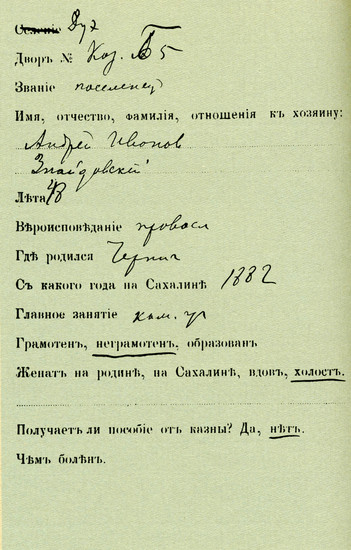 Селеніе Дуэ
Дворъ № Каз. 5
Званіе поселенец
Имя, отчество, фамилія, отношенія къ хозяину:
Андрей Иванов
Знайдовскій
Лѣта 48
Вѣроисповѣданіе правосл
Гдѣ родился Черниг
Съ какого года на Сахалинѣ 1882
Главное занятіе кам. уг
Грамотенъ, неграмотенъ, образованъ
Женатъ на родинѣ, на Сахалинѣ, вдовъ, холостъ.
Получаетъ ли пособіе отъ казны? Да, нѣтъ.
Чѣмъ боленъ.